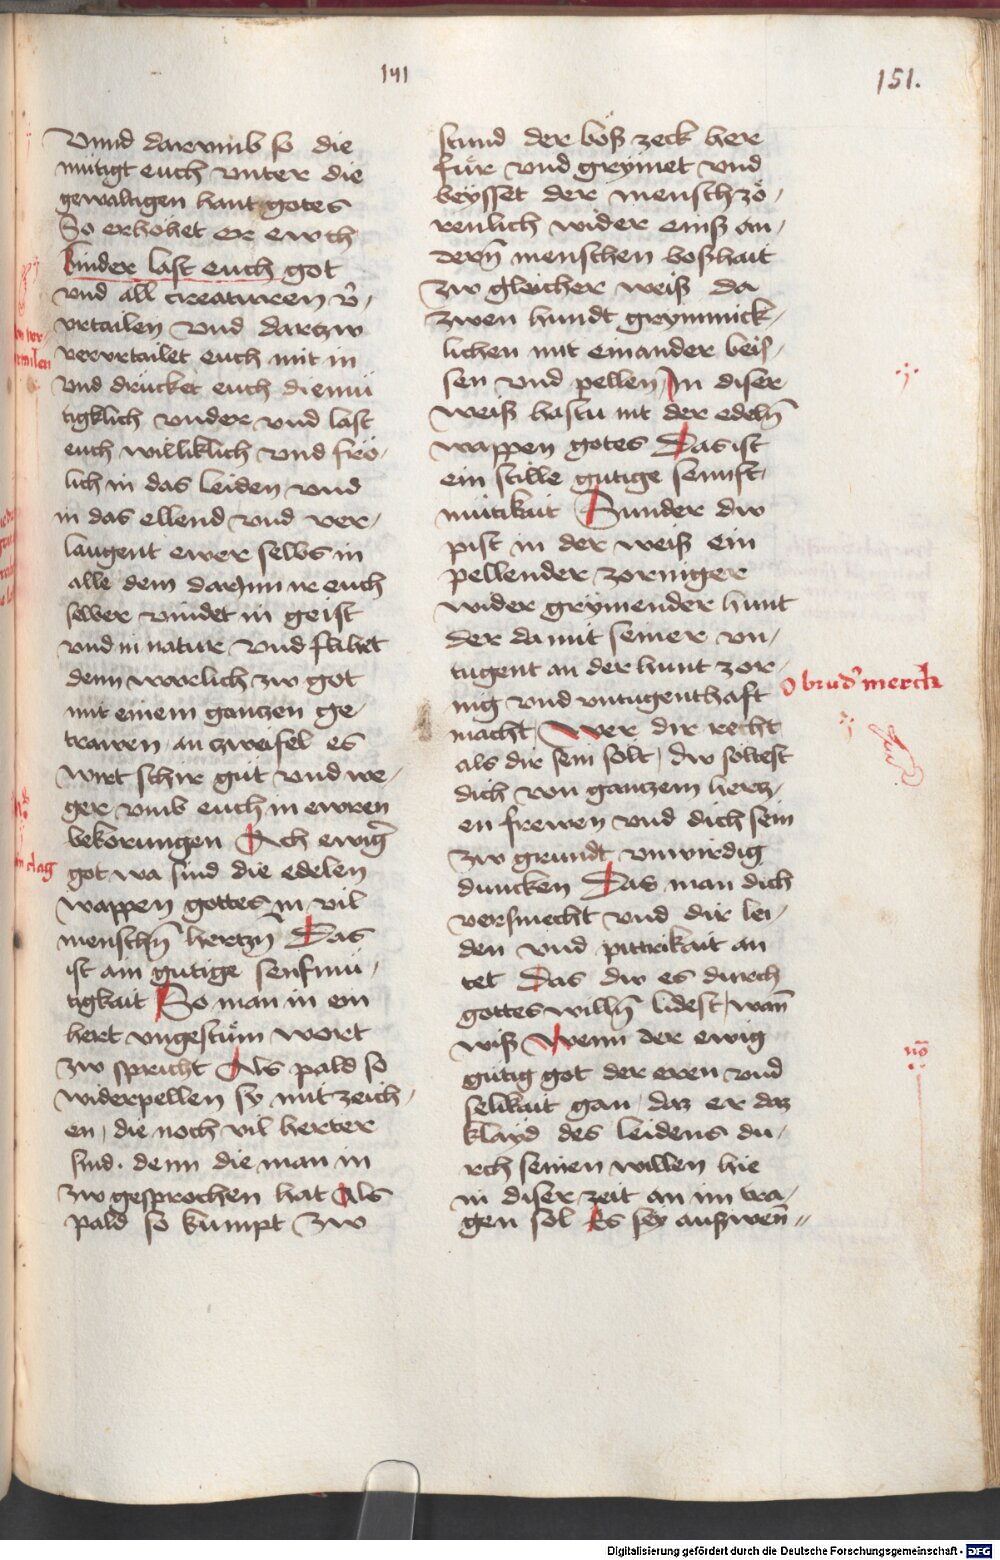 141
151.
Vnnd darvmb so die
mutigt euch vnter die
gewaltigen hant gotes
So erhöhet er ewch
kinder last euch got
vnd all creaturen v̾
vrtailen vnd dartzw
vervrtailet euch mit in
vnd drücket euch diemü
tigklich vnder vnd last
euch williklich vnd frö
lich in das leiden vnd
in das ellend vnd ver
laugent ewer selbs in
alle dem darinn ir euch
selber vindet in geist
vnd in natur vnd flihet
dennworlich zw got
mit einem gantzen ge
trawen an zweifel es
wirt schir gut vnd we
ger vmb euch in ewren
bekorungen Ach ewig̾
got wa sind die edelen
wappen gottes in vil
menschn̄ hertzn̄ Das
ist ain gutige senfmü
tigkait So man in ein
hert vngestüm wort
zw spricht Als pald so
widerpellen sy mit zeich
en, die noch vil herter
sind. denn die man in
zw gesprochen hat Als
pald so kumpt zw
stund der böß zeck her
für vnd grymet vnd
beysset der mensch zö
renlich wider einß an
dern̄ menschen boßhait
zw gleicher weiß da
zwen hundt grymmick
lichen mit einander beis
sen vnd pellen, In diser
weiß hastu nit der edeln̄
wappen gotes Das ist
ein stille gutige sennft
mütikait Sunder dw
pist in der weiß ein
pellender zorniger
wider grymender hunt
der da mit seiner vn
tugent an der hunt zor
nig vnd vntugenthaft
macht, Wer dir recht
als dir sein solt, dw soltest
dich von gantzem hertz
en frewen vnd dich sein
zw grundt vnwirdig
duncken Das man dich
versmecht vnd dir lei
den vnd pittrikait an
tet Das dw es durch
gottes willn̄ lidest, wan̄
wiß Wenn der ewig
gütig got der eren vnd
selikait gan, daz er daz
klayd des leidens du
rch seinen willen hie
in diser zeit an im tra
gen sol Es sey auszwen̄
O brud̾ merck
no̅
Digitalisierung gefördert durch die Deutsche Forschungsgemeinschaft - DFG